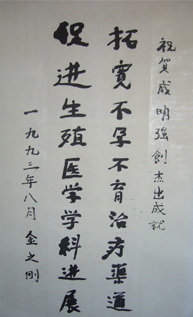 祝贺戚明强創杰出成就
拓宽不孕不育治疗渠道
促进生殖医学学科进展
一九九三年八月 金之刚